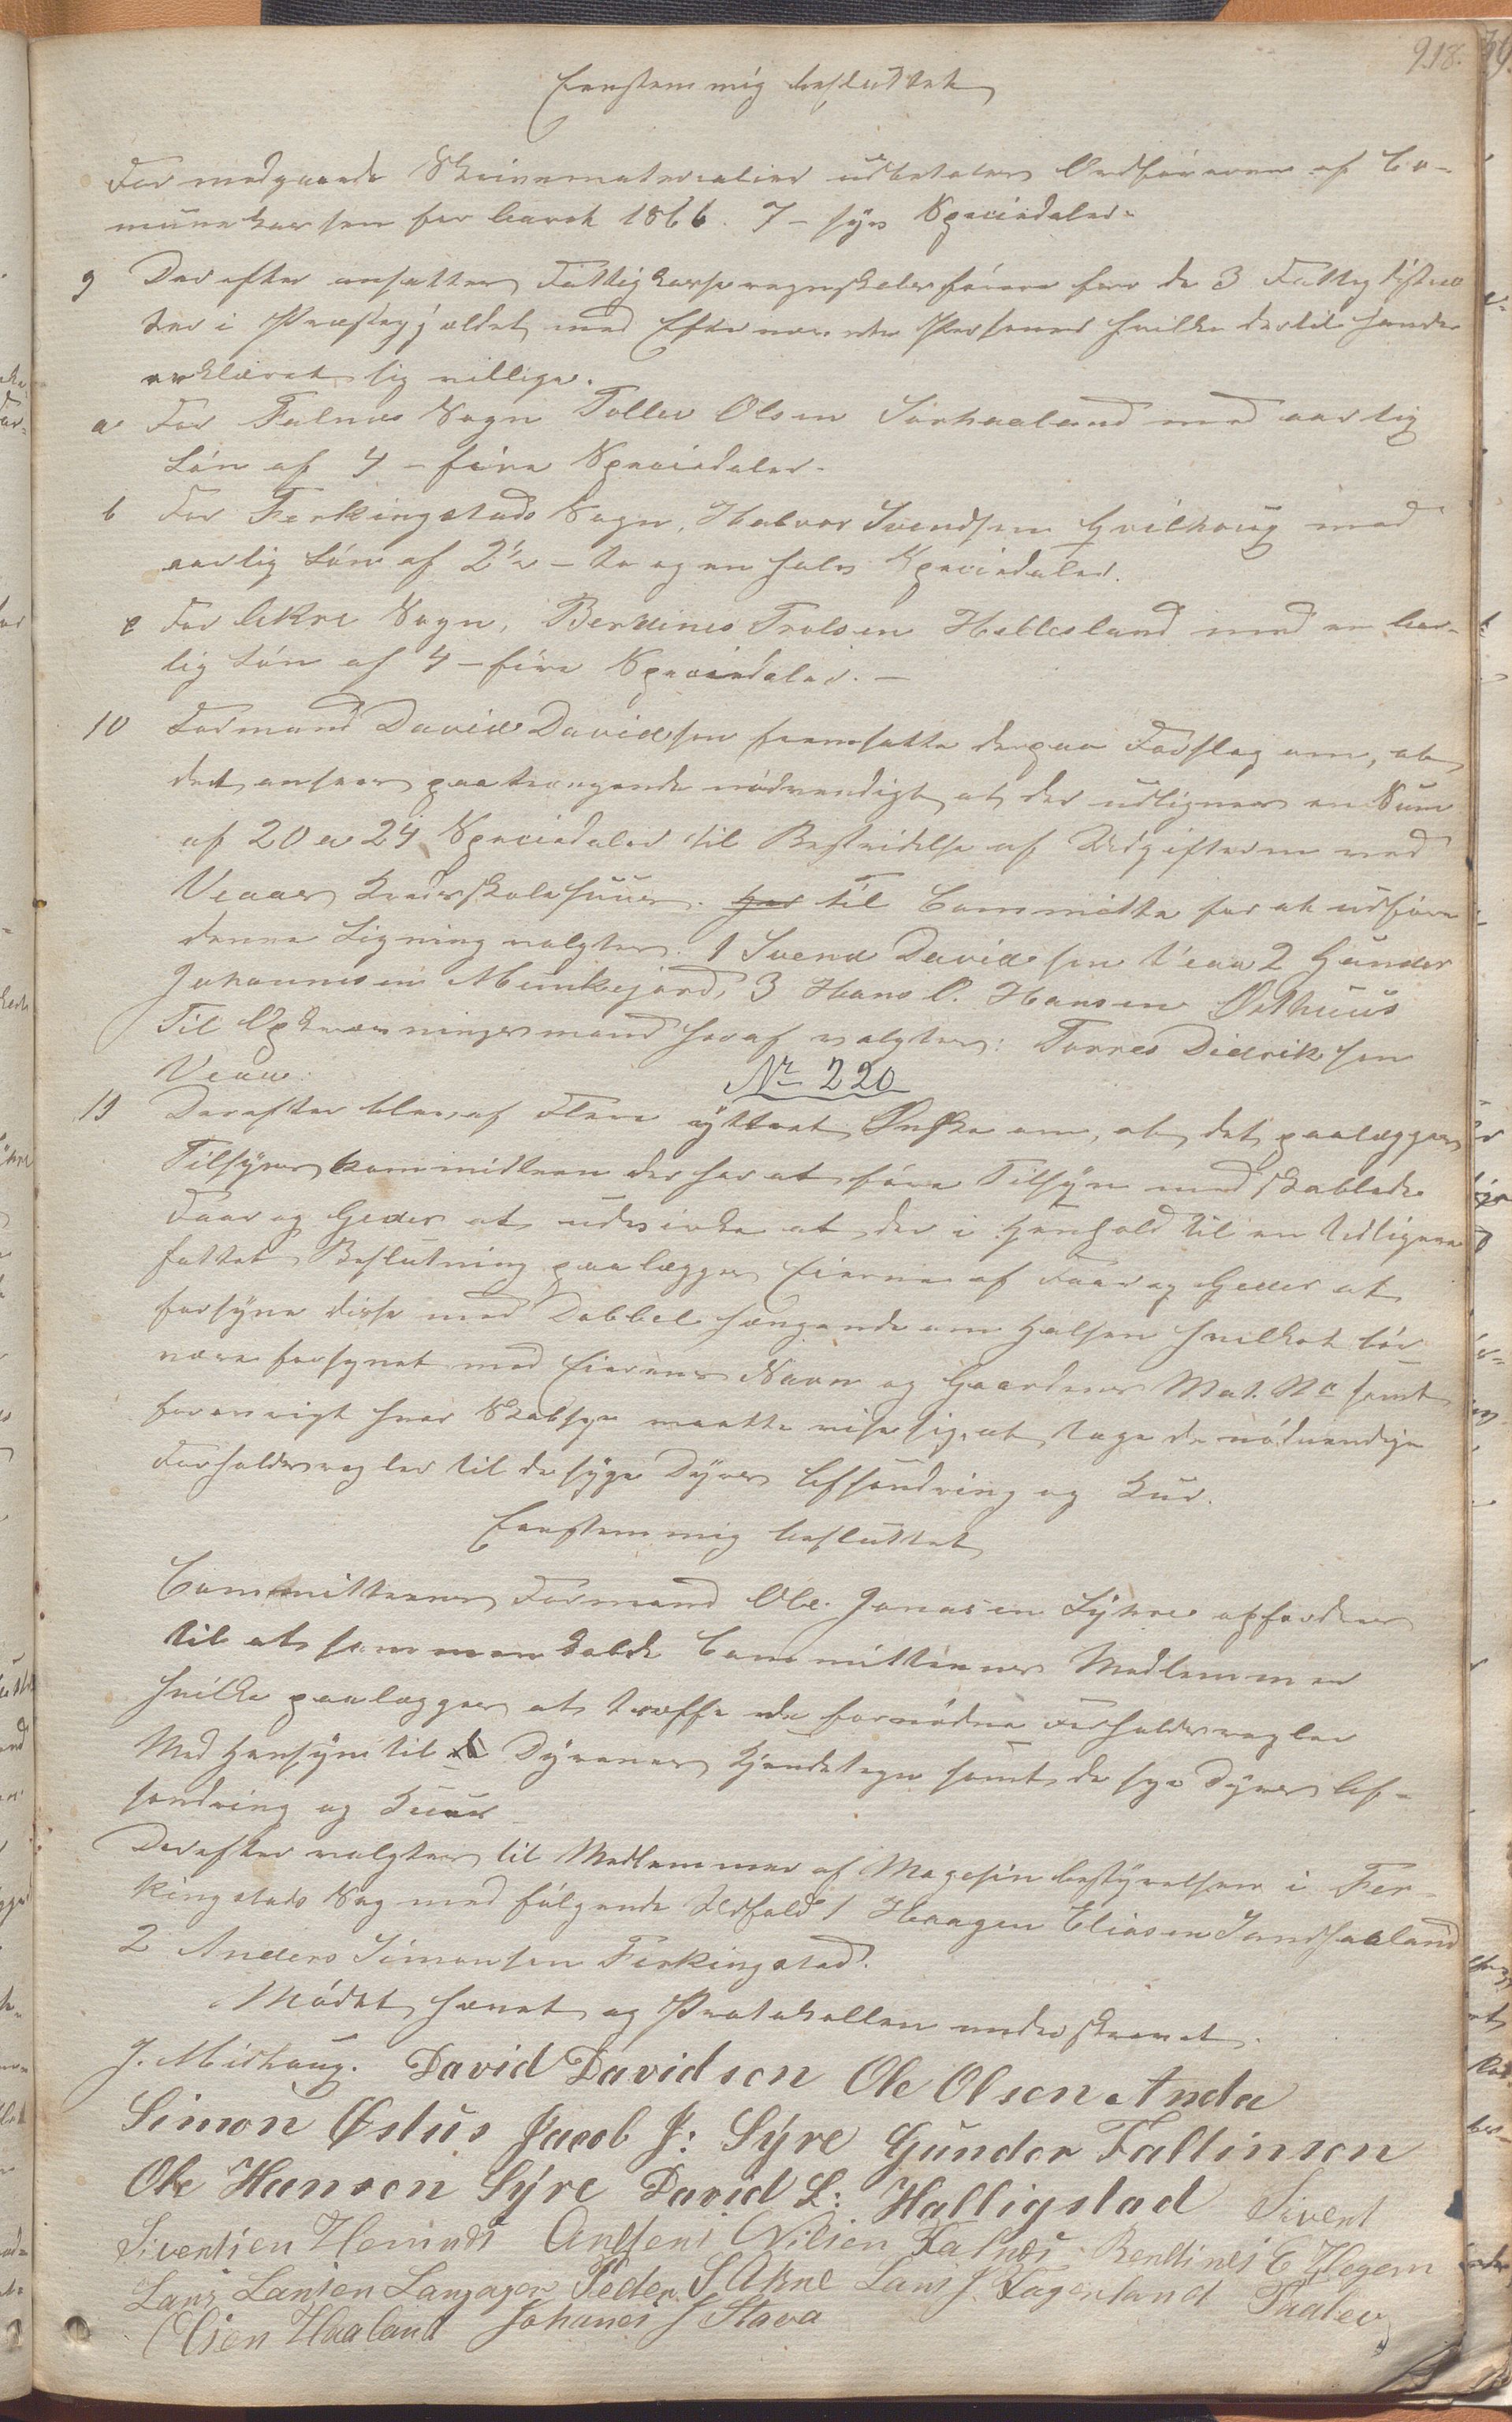 918.
Eenstemmig besluttet
For medgaaende Skrivematerialier udbetales Ordføreren af Co-
munekassen for Aaret 1866. 7 - syv Speciedaler.
9 Derefter ansattes Fattigkasseregnskabsfører for de 3 Fattigdistric
ter i Præstegjældet med Efternævnte Personer hvilke dertil havde
erklæret sig villige.
a For Falnes Sogn Tollev Olsen Sørhaaland med aarlig
Løn af 4 - fire Speciedaler.
b For Ferkingstads Sogn, Halvor Svendsen Hvilhoug med
aarlig Løn af 2½ - to og en halv Speciedaler.
c For Akre Sogn, Berdines Trolsen Hellesland med en Aar-
lig Løn af 4 - fire Speciedaler. -
10 Formand David Davidsen fremsatte derpaa Forslag om, at
det ansees paatrængende nødvendigt at der udlignes en Sum
af 20 a 24 Speciedaler til Bestridelse af Udgifterne ved
Veaas Kredsskolehuus. til Committe for at udføre
denne Ligning valgtes. 1 Svend Davidsen Veaa 2 Gunder
Johannesen Munkejord, 3 Hans O. Hansen Østhuus
Til Opkrævningsmand heraf valgtes: Torres Didriksen
Veaa.
No 220
11 Derefter blev af Flere yttret Ønske om, at det paalægges
Tilsynskommitteen der har at føre Tilsyn med skabbede
Faar og Geder at udvirke at der i Henhold til en tidligere
fattet Beslutning paalægges Eierne af Faar og Geder at
forsyne disse med Dobbel hængende om Halsen hvilket bør
være forsynet med Eierens Navn og Gaardens Mat. No samt
forøvrigt hvor Skabsyge maatte vise sig, at tage de nødvendige
Forholdsregler til de syge Dyrs Afsondring og Kur.
Eenstemmig besluttet
Committeens Formand Ole Jonasen Sýre opfordres
til at sammenkalde Committeens Medlemmer
hvilke paalægges at træffe de fornødne Forholdsregler
Med Hensyn til Dyrenes Kjendetegn samt de syge Dyrs Af-
sondring og Kuur
Derefter valgtes til Medlemmer af Magasinbestyrelsen i Fer-
kingstads Sogn med følgende Udfald 1 Haagen Eliasen Sandhaaland
2 Anders Simonsen Ferkingstad.
Mødet hævet og Protokollen underskrevet.
J. Midhaug. David Davidsen Ole Olsen Anda
Simon Østus Jacob J: Sýre Gunder Fallinsen
Ole Hansen Sýre David L: Halligstad Sivent
Siventsen Hemnes Nilsen Falnes Bendines E Hegem
Lars Larsen Langager Peder S Akre Lars J. Fagerland Taalev
Olsen Haaland Johanes J Stava